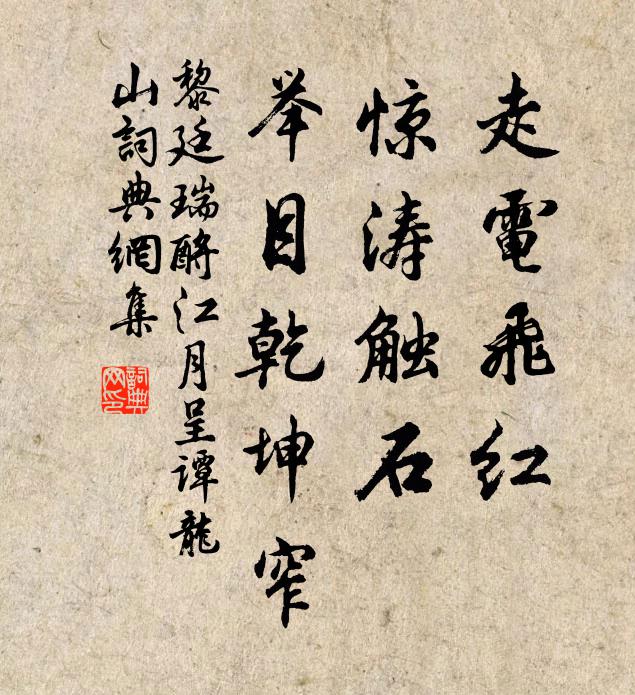 走電飛红
惊涛触石
举目乾坤窄
黎廷瑞酹江月呈谭龍
山詞典網集
詞典
网印